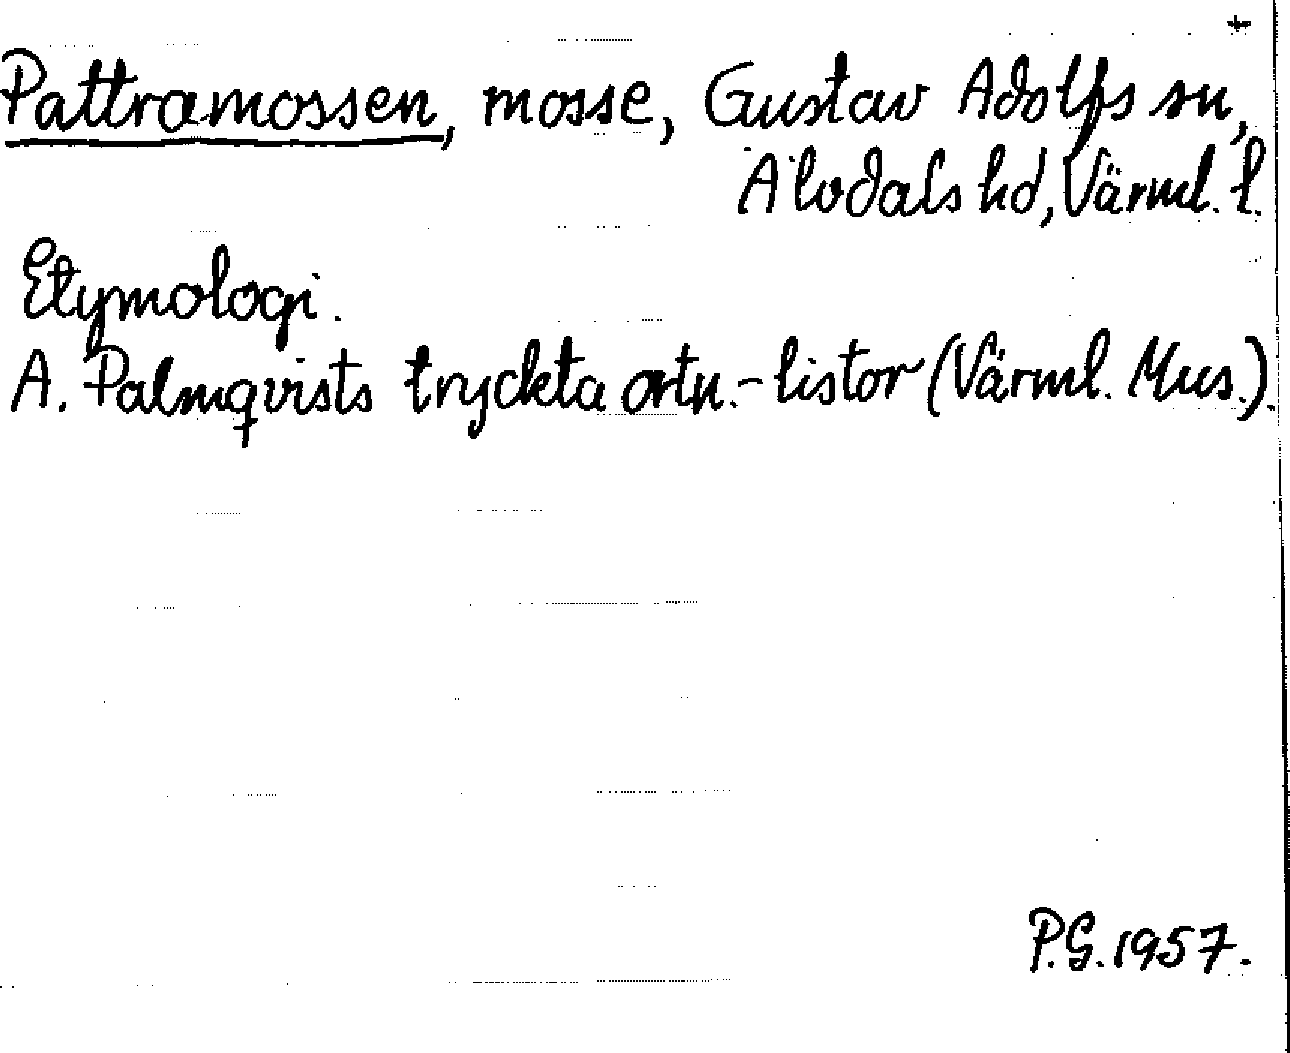 Pattramossen, mosse, Gustav Adolfs sn,
Älvdals hd, Värml. l.
Etymologi.
A. Palmqvists tryckta ortn.-listor (Värml. Mus.).
P.G. 1957.